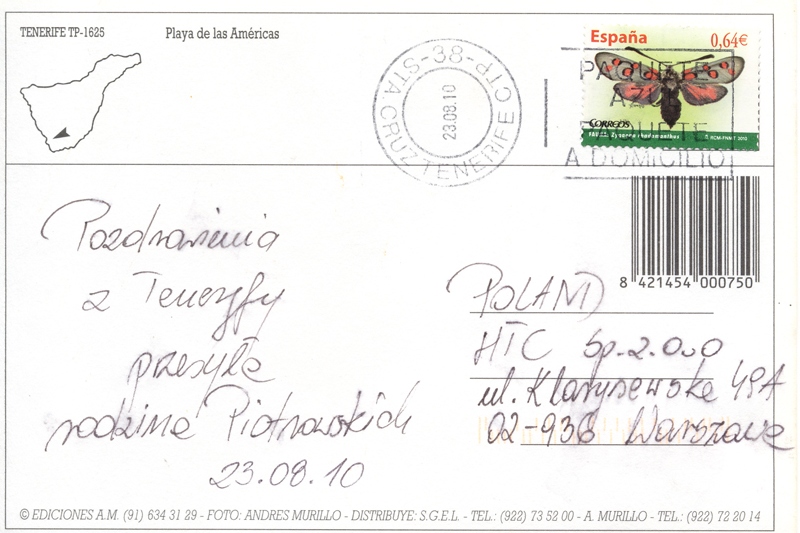 TENERIFE TP-1625
Playa de las Américas
38-STA CRUZ TENERIFE CTP-
23.08.10
España
0,64€
PAQUETE
AZUL
PAQUETE
A DOMICILIO
Correos
8 421454 000750
Pozdrowienia
z Teneryfy
przesyła
rodzina Piotrowskich
23.08.10
POLAND
HTC Sp. z o.o
ul. Klarysewska 49A
02-936 Warszawa
© EDICIONES A.M. (91) 634 31 29 - FOTO: ANDRES MURILLO - DISTRIBUYE: S.G.E.L. - TEL.: (922) 73 52 00 - A. MURILLO - TEL.: (922) 72 20 14